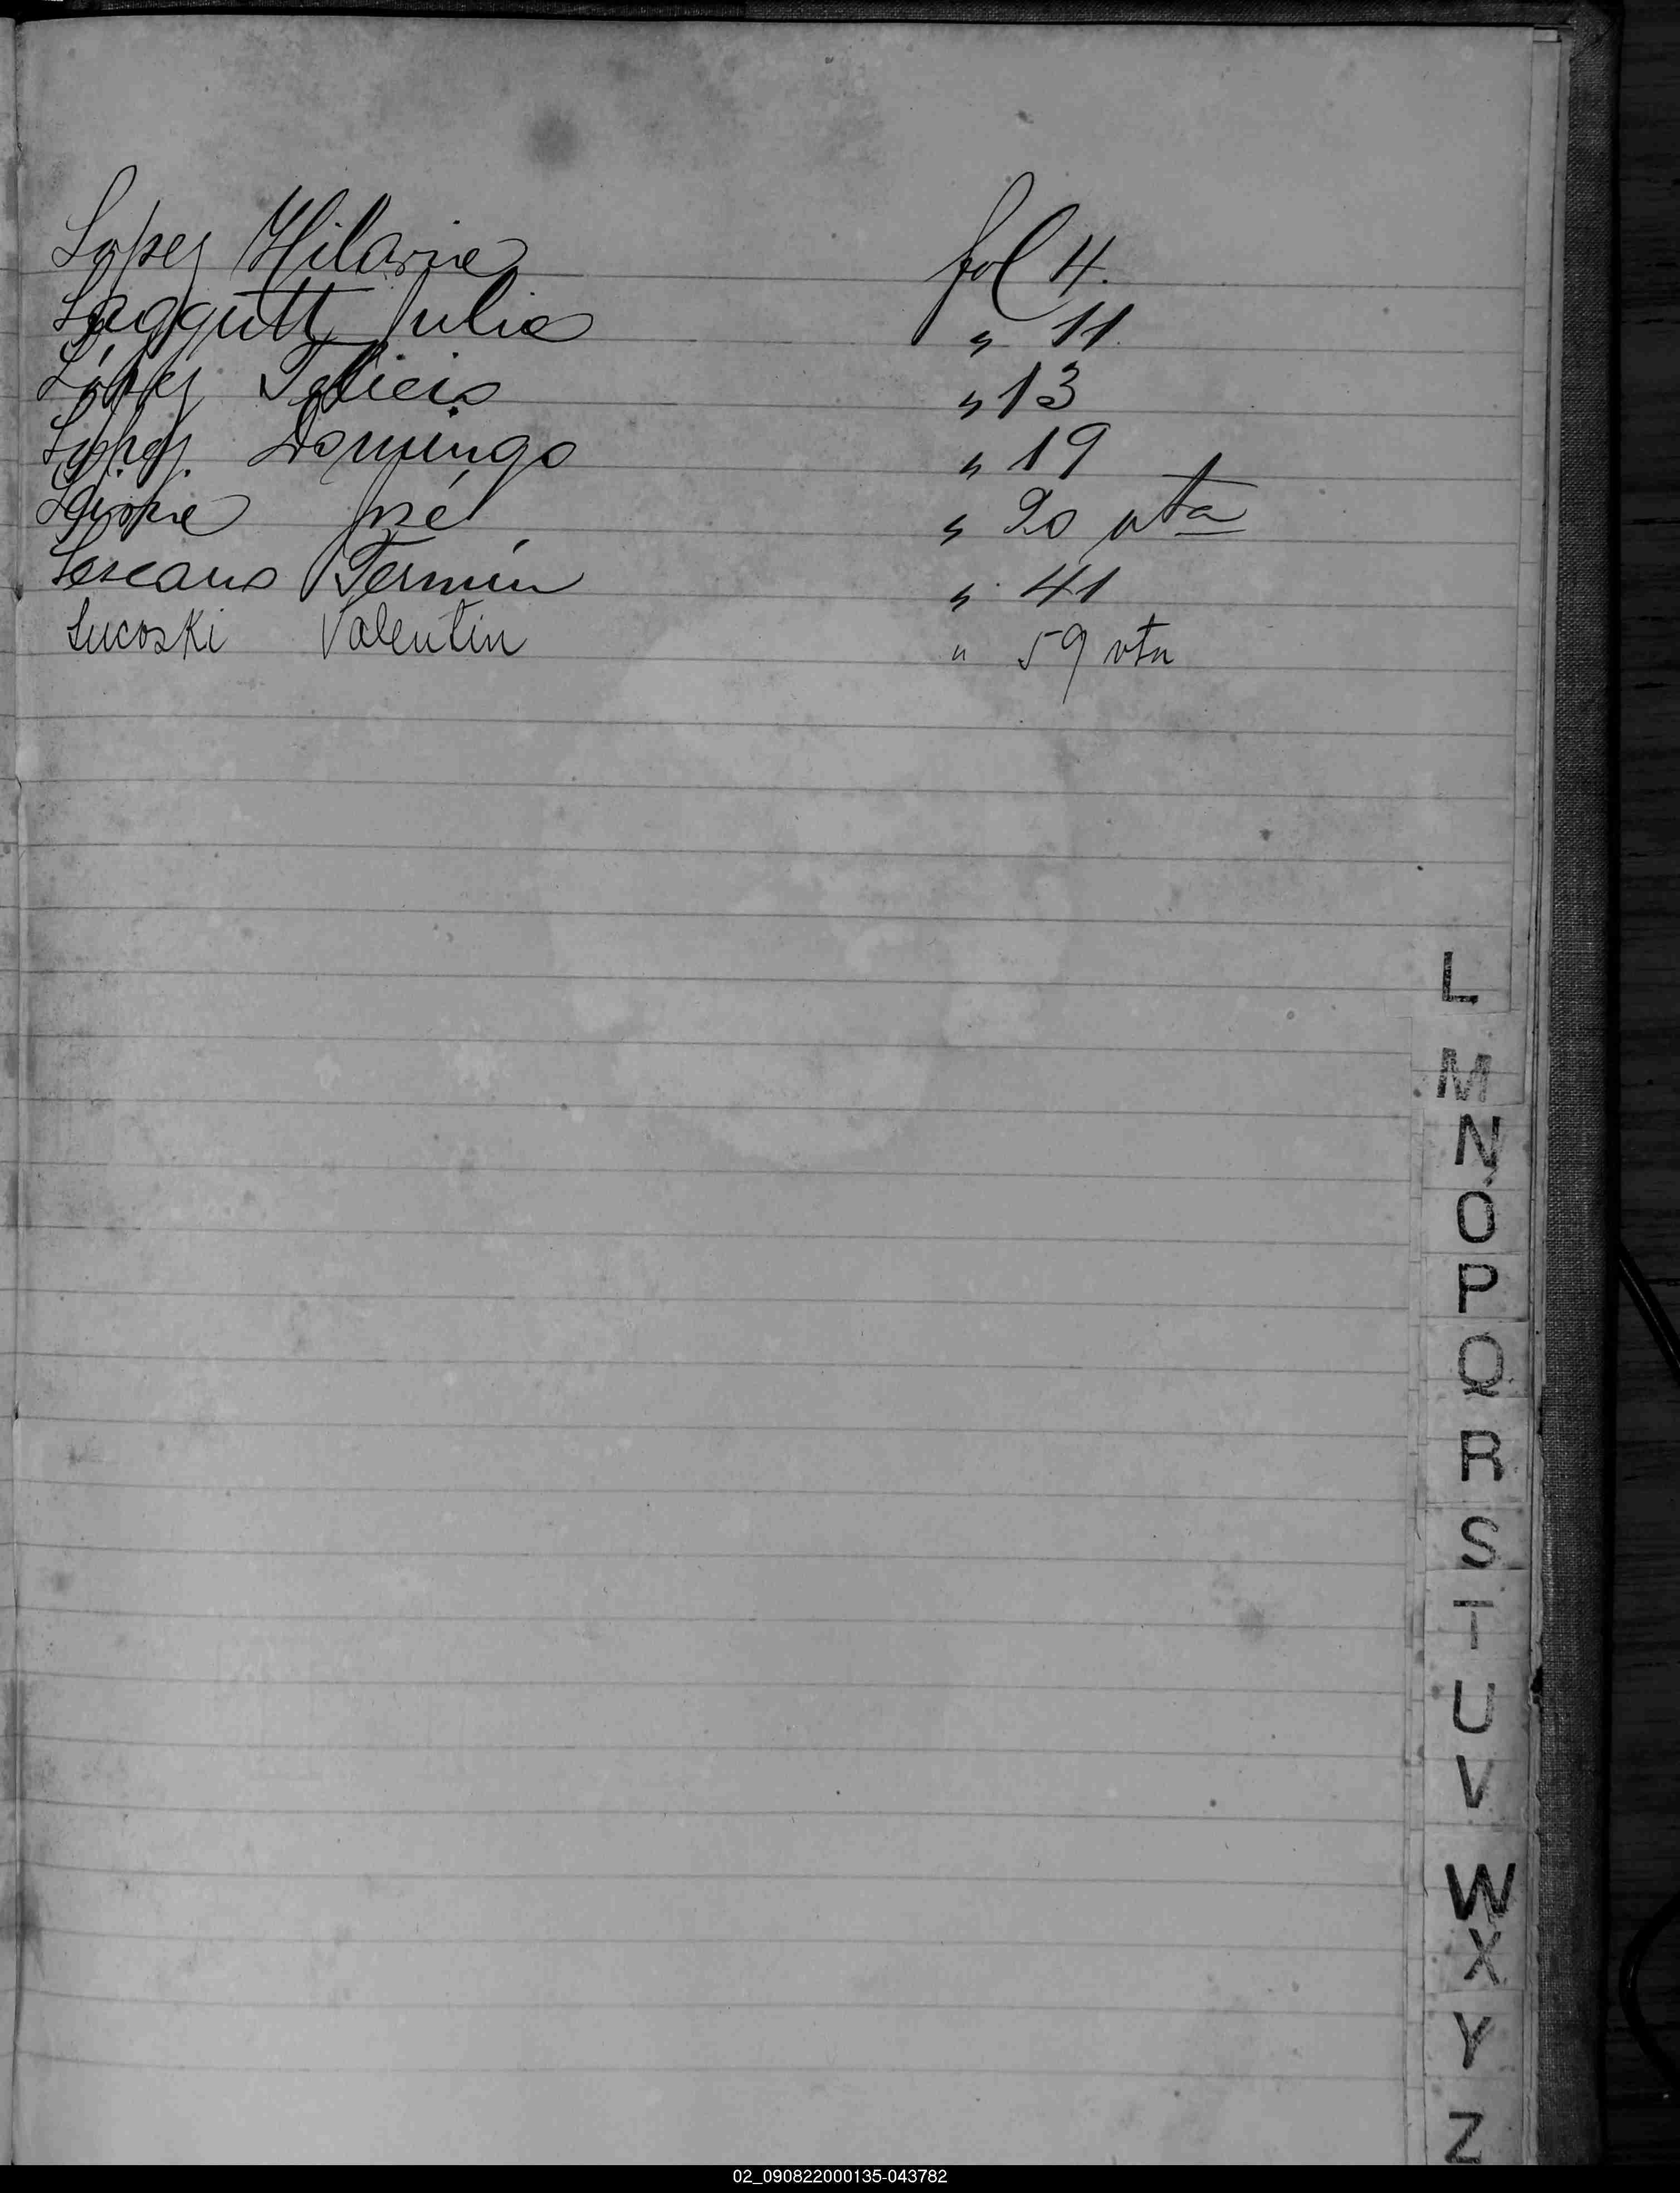 Lopez Hilario fol 4.
Julio " 11.
López Felicia " 13
Lopez. Domingo " 19
José " 20 vta
Lescano Fermín " 41
Lucoski Valentin " 59 vta
L
M
N
O
P
Q
R
S
T
U
V
W
X
Y
Z
02_090822000135-043782